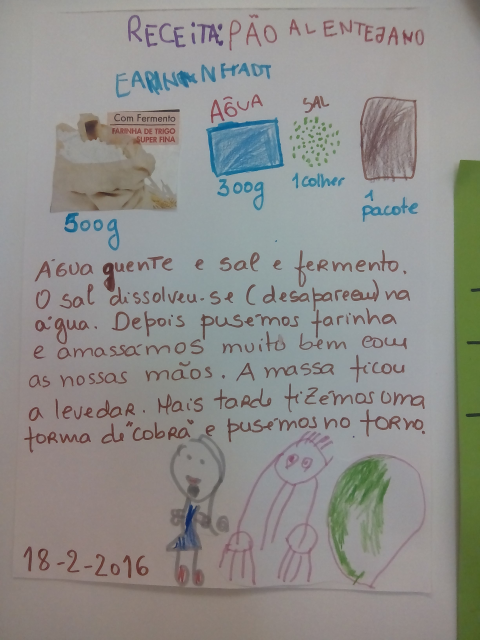 RECEITA: PÃO ALENTEJANO
Com Fermento
FARINHA DE TRIGO
SUPER FINA
500g
AGUA
300g
SAL
1 colher
1
pacote
AGUA quente e sal e fermento.
O sal dissolveu-se (desapareceu) na
água. Depois pusemos farinha
e amassamos muito bem com
as nossas mãos. A massa ficou
a levedar. Mais tarde fizemos uma
forma de "cobra" e pusemos no forno.
18-2-2016